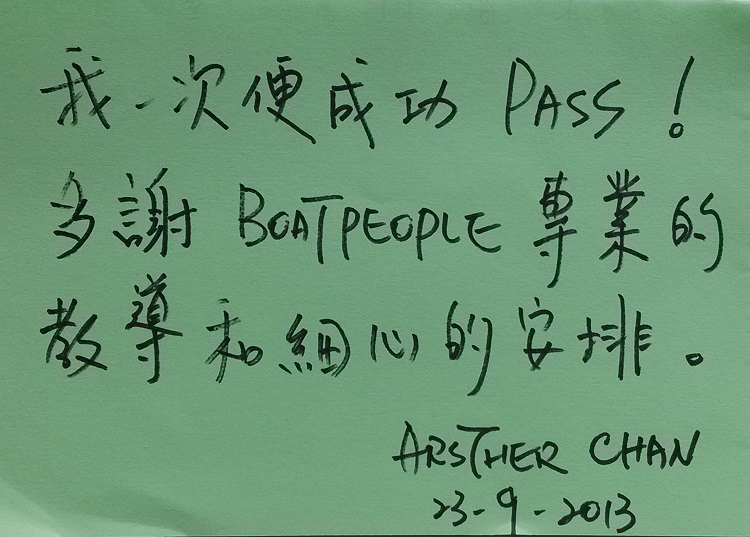 我一次便成功 PASS！
多謝 BOATPEOPLE 專業的
教導和細心的安排。
ARSTHER CHAN
23-9-2013